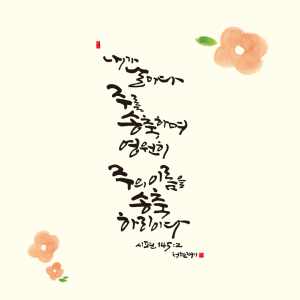 내가
날마다
주를
송축하며
영원히
주의 이름을
송축
하리이다
시편 145:2